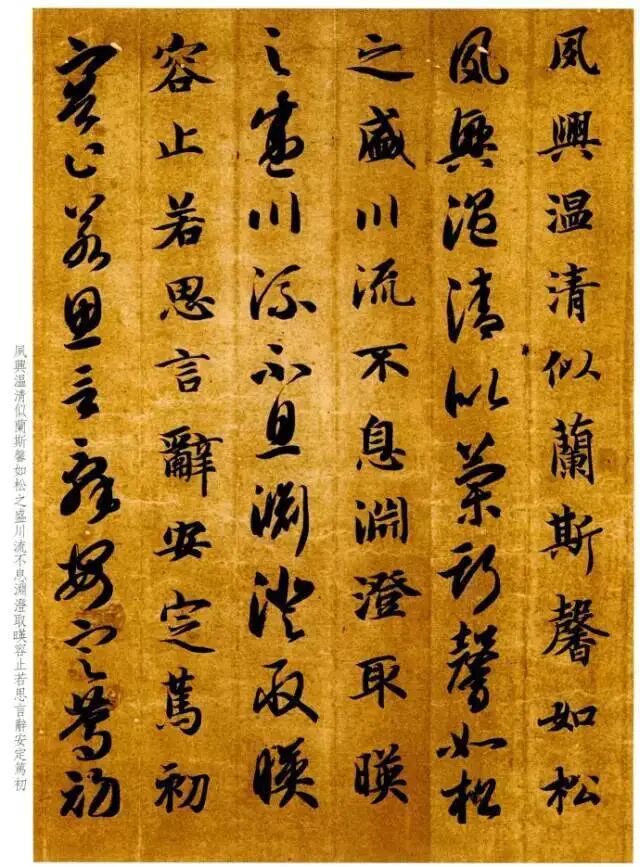 夙興温清似蘭斯馨如松
夙興温清似蘭斯馨如松
之盛川流不息淵澄取暎
之盛川流不息淵澄取暎
容止若思言辭安定篤初
容止若思言辭安定篤初
夙興溫清似蘭斯馨如松之盛川流不息淵澄取暎容止若思言辭安定篤初